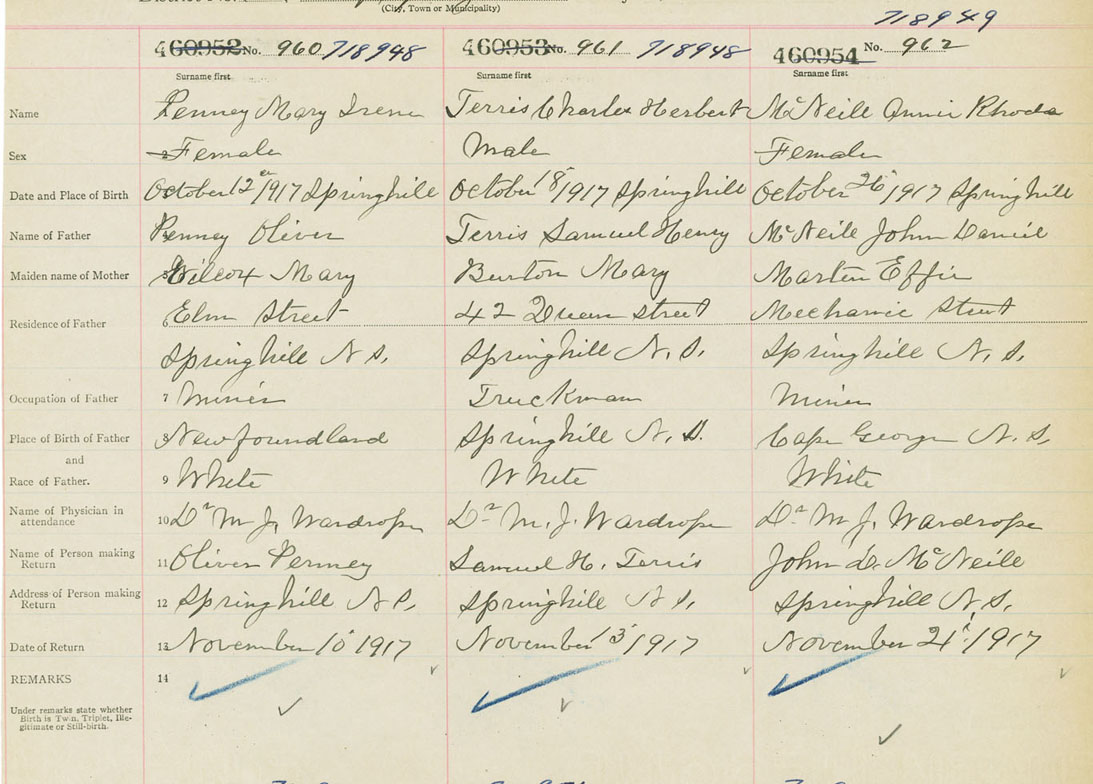 (City, Town or Municipality)
718949
460952 No. 960 718948 460953 No. 961 718948 460954 No. 962
Surname first Surname first Surname first
Name Penney Mary Irene Terris Charles Herbert McNeill Annie Rhoda
Sex 2 Female Male Female
Date and Place of Birth October 12 1917 Springhill October 18 1917 Springhill October 26 1917 Springhill
Name of Father Penney Oliver Terris Samuel Henry McNeile John Daniel
Maiden name of Mother Wilcox Mary Burton Mary Martin Effie
Residence of Father Elm Street 42 Queen Street Mechanic Street
Springhill N S. Springhill N. S. Springhill N. S.
Occupation of Father 7 Miner Truckman Miner
Place of Birth of Father 8 Newfoundland Springhill N. S. Cape George N. S.
and
Race of Father. 9 White White White
Name of Physician in
attendance 10 Dr M J. Wardrope Dr M. J. Wardrope Dr M J. Wardrope
Name of Person making
Return 11 Oliver Penney Samuel H. Terris John D. McNeile
Address of Person making
Return 12 Springhill N S. Springhill N S. Springhill N. S.
Date of Return 13 November 10 1917 November 13 1917 November 21 1917
REMARKS 14
Under remarks state whether
Birth is Twin, Triplet, Ille-
gitimate or Still-birth.